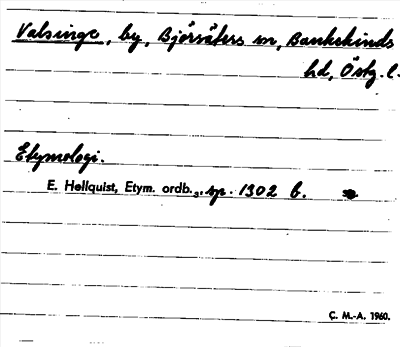 Valsinge, by, Björsäters sn, Bankekinds
hd, Östg. l.
Etymologi.
E. Hellquist, Etym. ordb.3, sp. 1302 b.
C. M.-A. 1960.